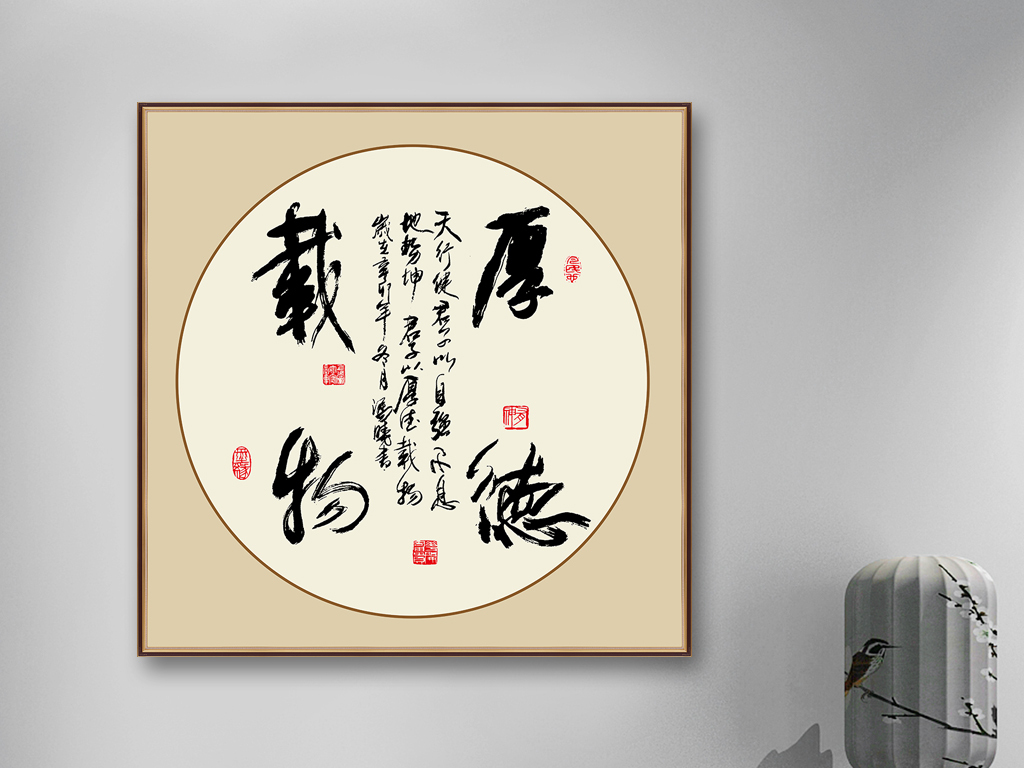 厚德
天行健君子以自强不息
地势坤 君子以厚德载物
歲在辛卯年冬月
書
載物